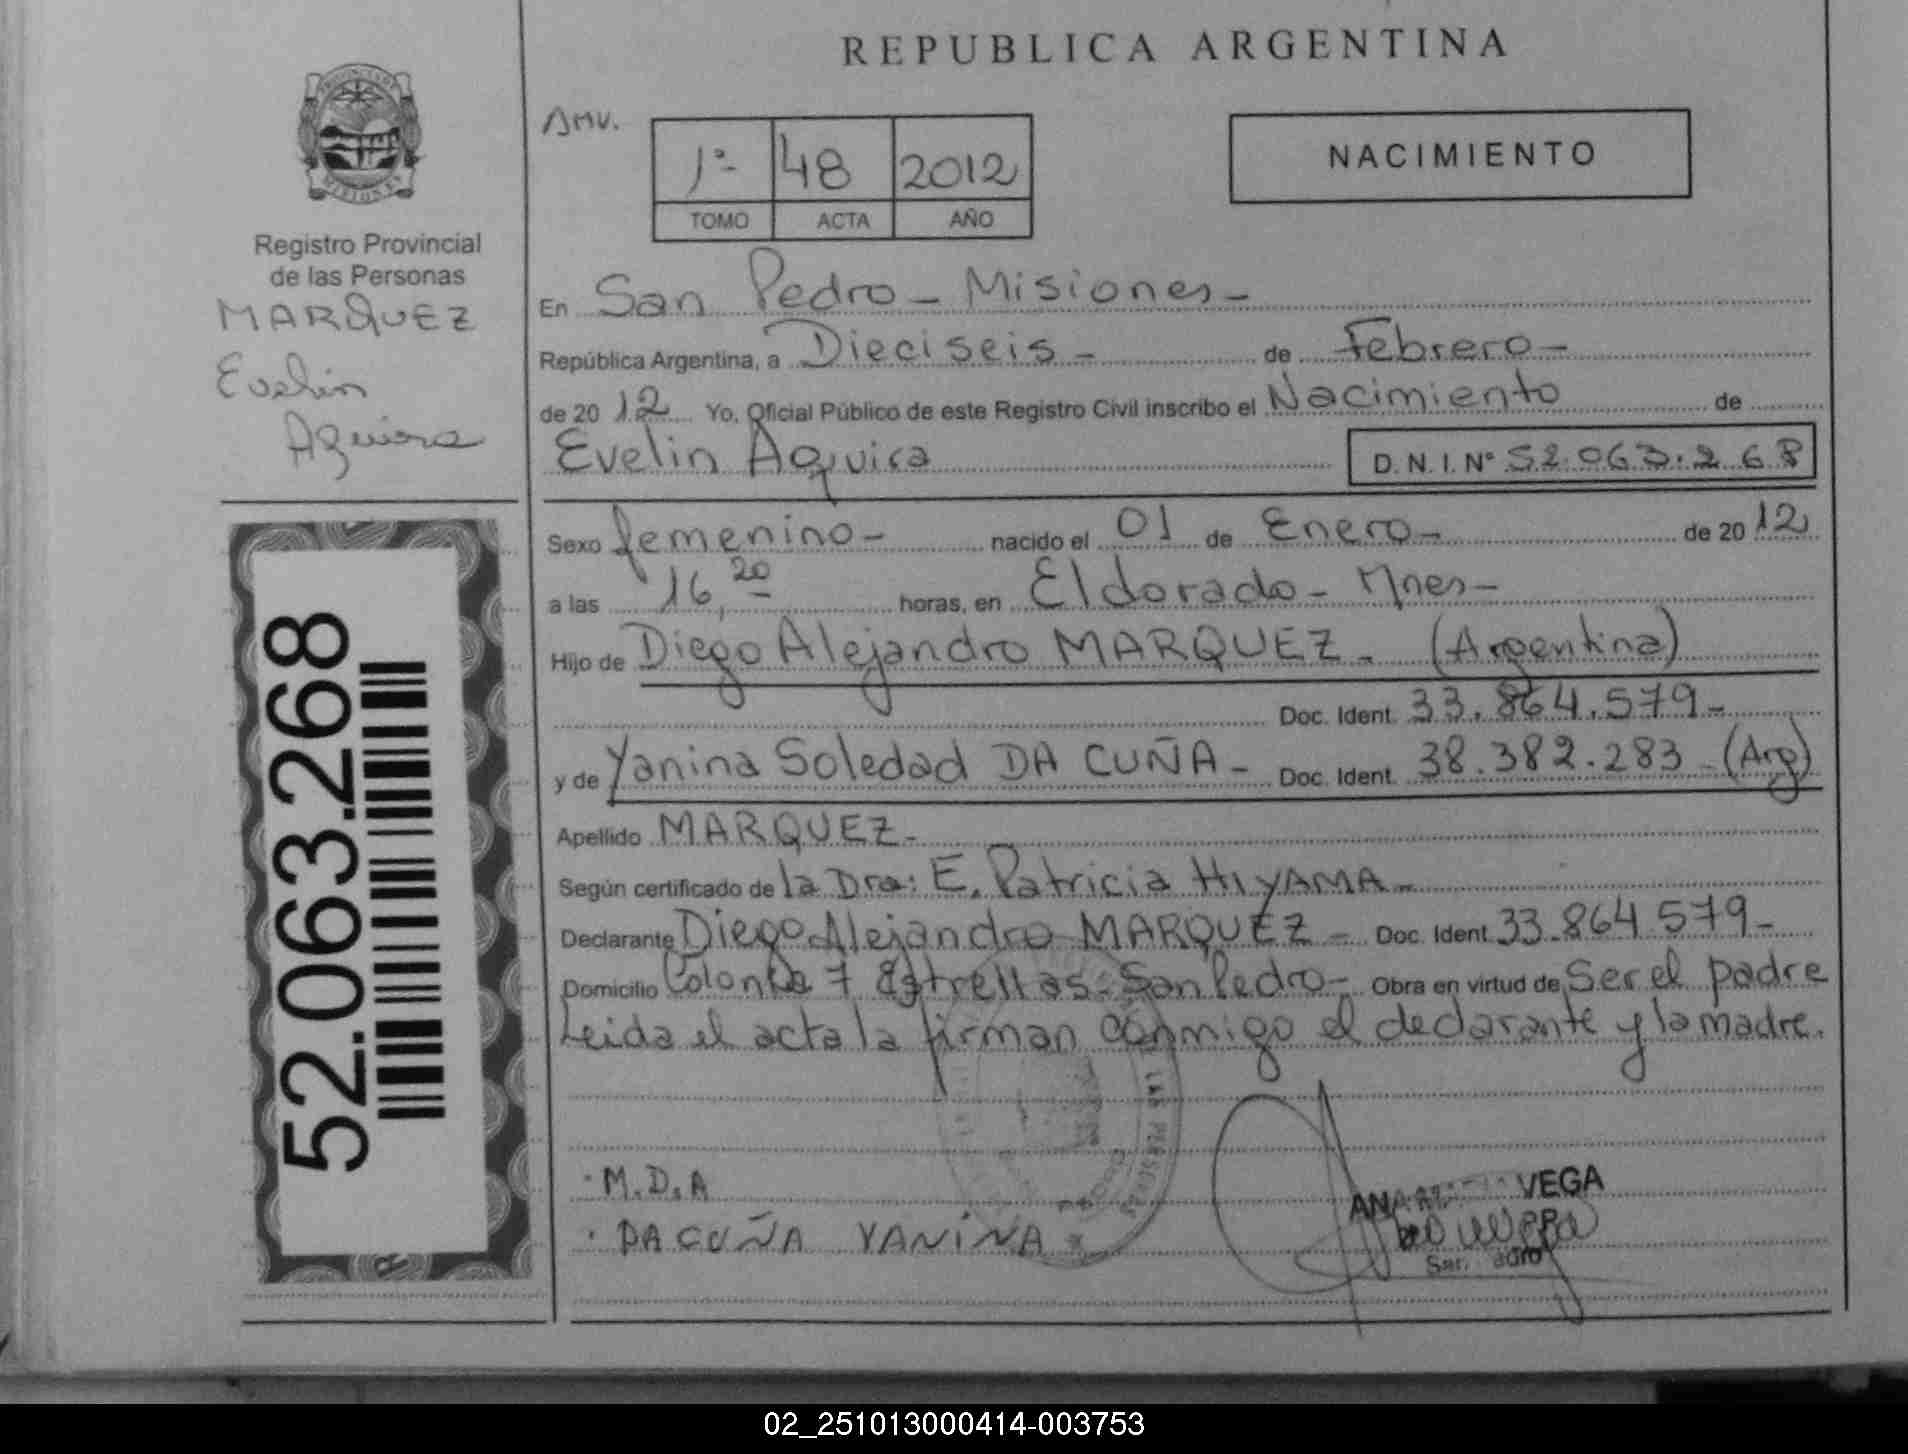 REPUBLICA ARGENTINA
AMV.
1º- 48 2012
TOMO ACTA AÑO
NACIMIENTO
PROVINCIA DE
MISIONES
Registro Provincial
de las Personas
MARQUEZ
Evelin
Aquira
En San Pedro - Misiones -
República Argentina, a Dieciseis - de Febrero -
de 20 12 Yo, Oficial Público de este Registro Civil inscribo el Nacimiento de
Evelin Aquira D.N.I. Nº 52.063.268
Sexo femenino - nacido el 01 de Enero - de 20 12
a las 16,20 horas, en Eldorado - Mnes -
Hijo de Diego Alejandro MARQUEZ - (Argentina)
Doc. Ident. 33.864.579 -
y de Yanina Soledad DA CUÑA - Doc. Ident. 38.382.283 - (Arg)
Apellido MARQUEZ -
Según certificado de la Dra: E. Patricia HIYAMA -
Declarante Diego Alejandro MARQUEZ - Doc. Ident. 33.864 579 -
Domicilio Colonia 7 Estrellas - San Pedro - Obra en virtud de Ser el padre
Leida el acta la firman conmigo el declarante y la madre.
LAS PERSONAS
M.D.A
DA CUÑA YANINA
VEGA
52.063.268
02_251013000414-003753